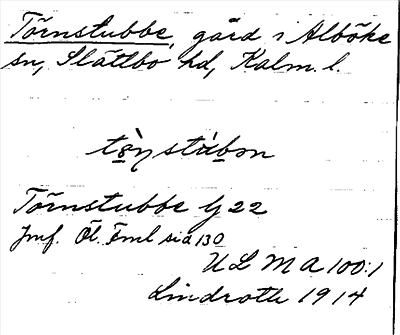 Törnstubbe, gård i Alböke
sn, Slättbo hd, Kalm. l.
Törnstubbe lj 22
Jmf. Öl. Fml sid 130
ULMA 100:1
Lindroth 1914